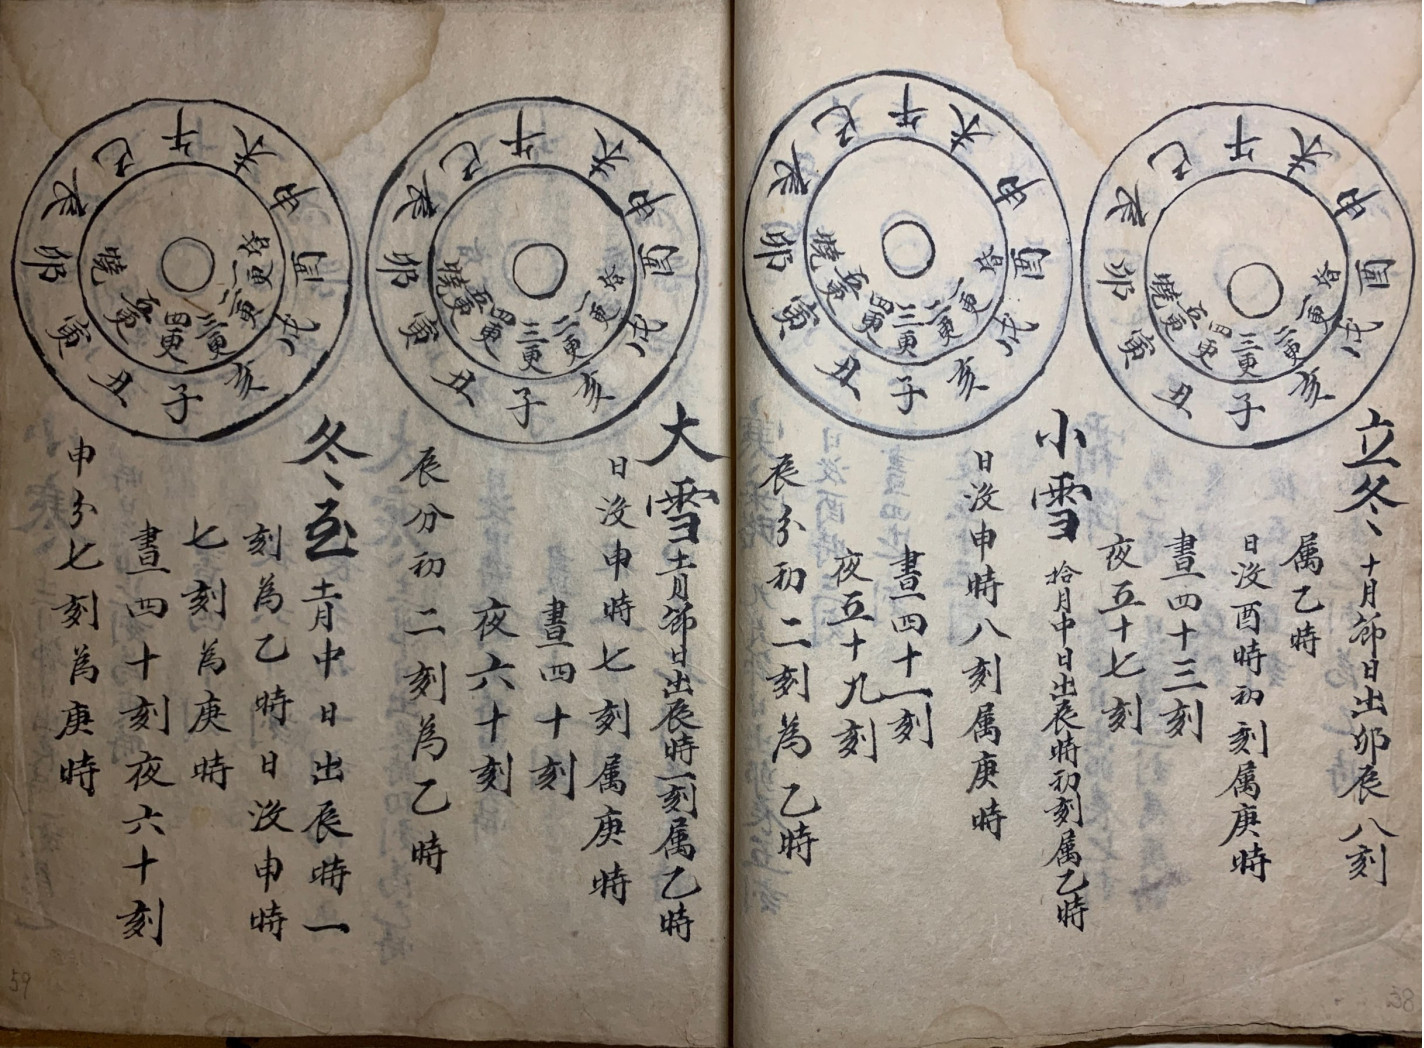 午
未
申
酉
戌
亥
子
丑
寅
卯
辰
巳
昏
一更
二更
三更
四更
五更
曉
立冬 十月節日出卯辰八刻
属乙時
日没酉時初刻属庚時
晝四十三刻
夜五十七刻
午
未
申
酉
戌
亥
子
丑
寅
卯
辰
巳
昏
一更
二更
三更
四更
五更
曉
小雪 拾月中日出辰時初刻属乙時
日没申時八刻属庚時
晝四十一刻
夜五十九刻
辰分初二刻為乙時
午
未
申
酉
戌
亥
子
丑
寅
卯
辰
巳
昏
一更
二更
三更
四更
五更
曉
大雪 十一月節日出辰時一刻属乙時
日没申時七刻属庚時
晝四十刻
夜六十刻
辰分初二刻為乙時
午
未
申
酉
戌
亥
子
丑
寅
卯
辰
巳
昏
一更
二更
三更
四更
五更
曉
冬至 十一月中日出辰時一
刻為乙時日没申時
七刻為庚時
晝四十刻夜六十刻
申分七刻為庚時
58
59